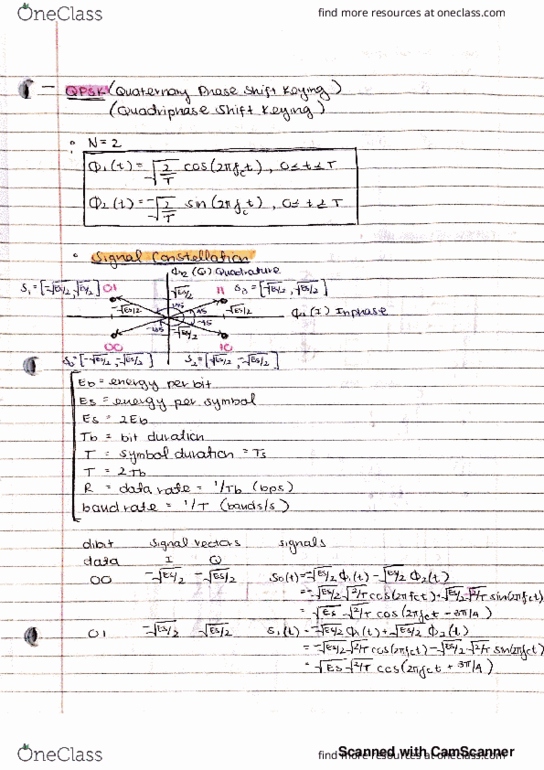 OneClass
find more resources at oneclass.com
— QPSK (Quaternary Phase Shift Keying)
(Quadriphase Shift Keying)
N=2
ϕ1(t) = √2/T cos(2πfct), 0≤t≤T
ϕ2(t) = -√2/T sin(2πfct), 0≤t≤T
Signal Constellation
ϕ2 (Q) Quadrature
S1=[-√Es/2, √Es/2] 01
√Es/2
11 S3=[√Es/2, √Es/2]
-√Es/2
√Es/2
ϕ1 (I) Inphase
-√Es/2
00
10
S0=[-√Es/2, -√Es/2]
S2=[√Es/2, -√Es/2]
Eb = energy per bit
Es = energy per symbol
Es = 2Eb
Tb = bit duration
T = symbol duration = Ts
T = 2Tb
R = data rate = 1/Tb (bps)
baud rate = 1/T (bauds/s)
dibit signal vectors signals
data I Q
00 -√Es/2 -√Es/2 S0(t)=-√Es/2 ϕ1(t)-√Es/2 ϕ2(t)
=-√Es/2 √2/T cos(2πfct)+√Es/2 √2/T sin(2πfct)
=√Es √2/T cos(2πfct - 3π/4)
01 -√Es/2 √Es/2 S1(t)=-√Es/2 ϕ1(t)+√Es/2 ϕ2(t)
=-√Es/2 √2/T cos(2πfct)-√Es/2 √2/T sin(2πfct)
=√Es √2/T cos(2πfct + 3π/4)
OneClass
find more resources at oneclass.com
Scanned with CamScanner